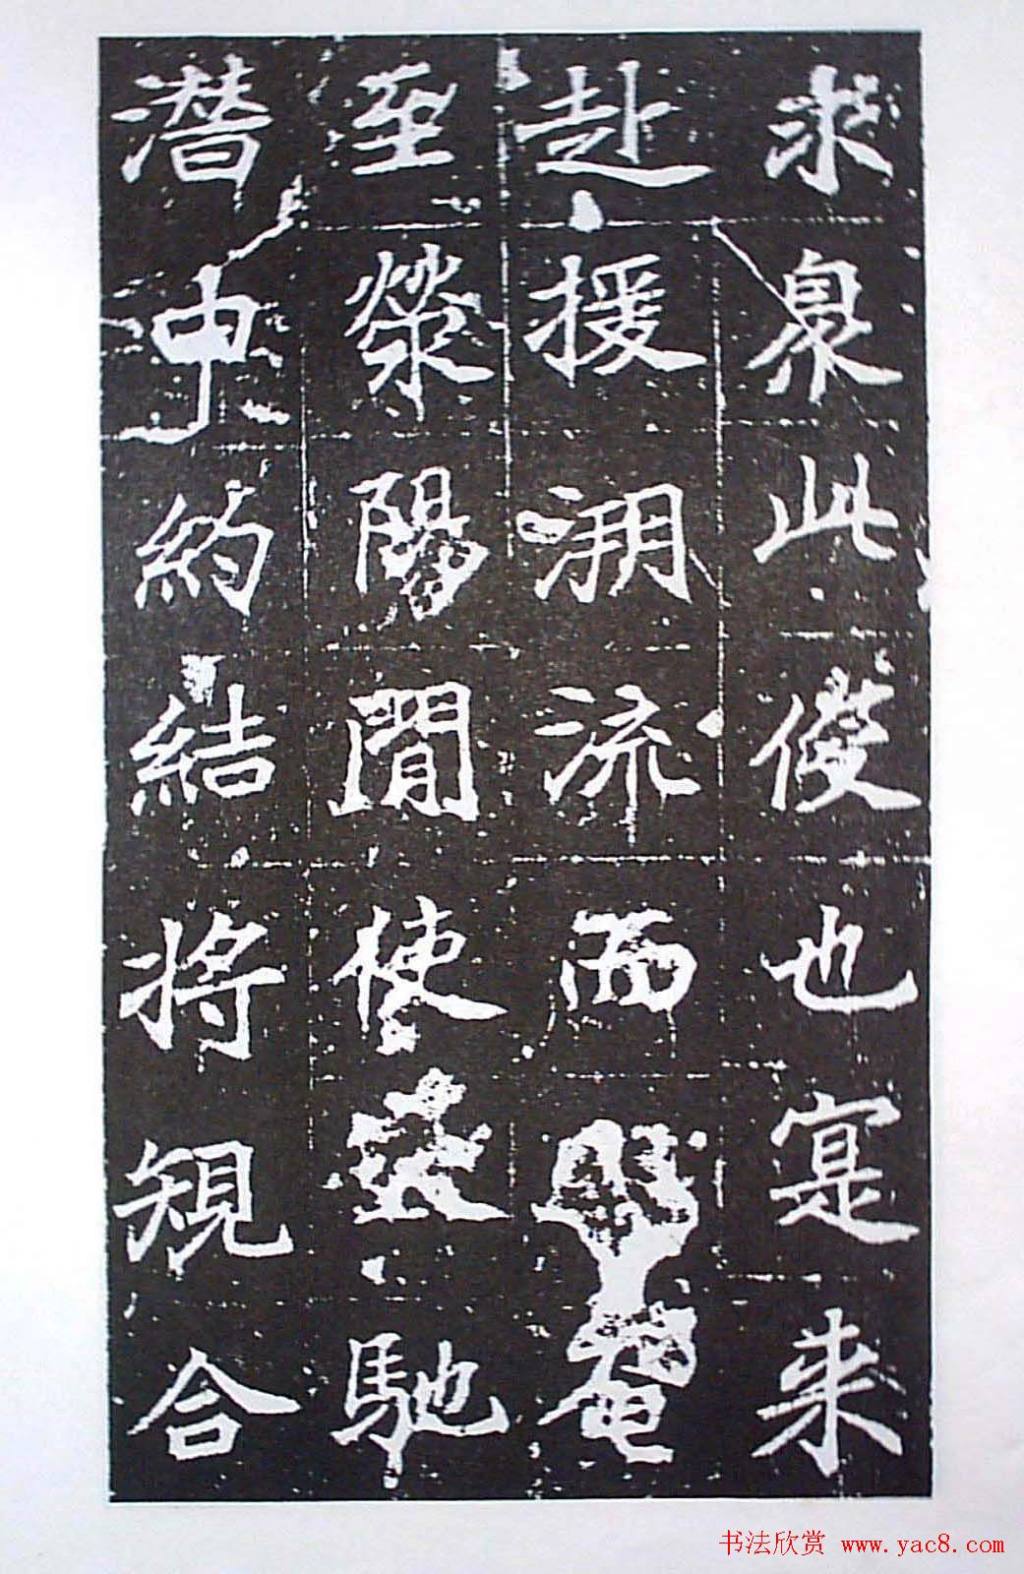 求臮此也寔来
赴援淜流而奄
至滎陽間使馳
潛申約結將規合
书法欣赏 www.yac8.com